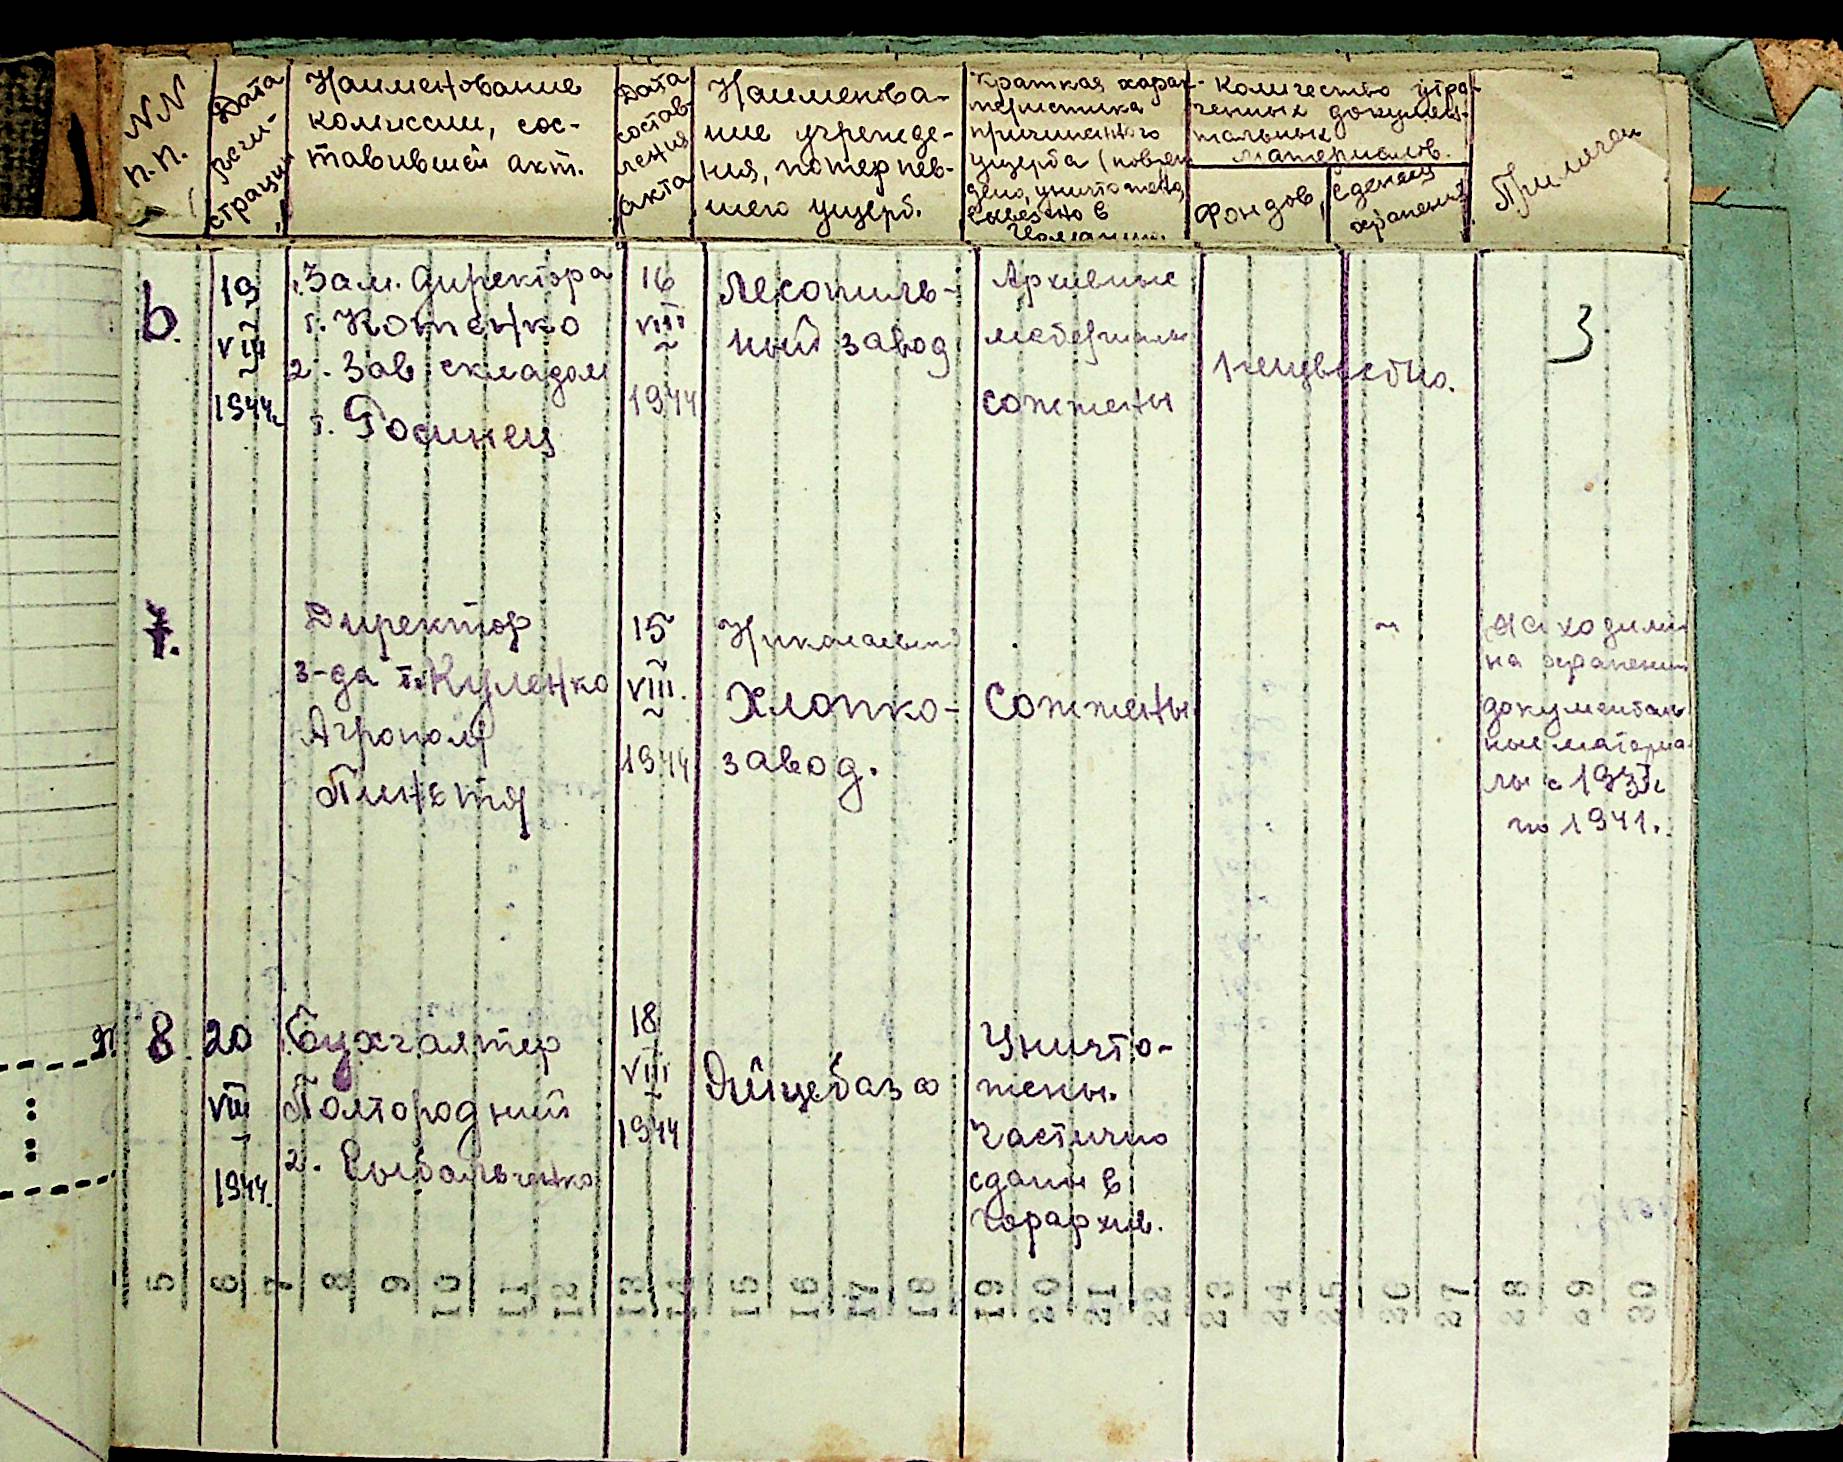 NN
п.п.
Дата
реги-
страции
Наименование
комиссии, сос-
тавившей акт.
Дата
состав
ления
акта
Наименова-
ние учрежде-
ния, потерпев-
шего ущерб.
Краткая харак-
теристика
причиненного
ущерба (повреж
дено, уничтожено,
вывезено в
Германию.
Количество утра-
ченных докумен-
тальных
материалов.
Фондов,
единиц
хранения
Примечан
6.
19
VIII
1944г
1. Зам. директора
т. Котенко
2. Зав складом
т. Росинец
16
VIII
1944
Лесопиль-
ный завод
Архивные
материалы
сожжены
неизвестно.
3
7.
Директор
з-да т. Куленко
Агроном
15
VIII.
1944
Николаевский
Хлопко-
завод.
Сожжены
Находились
на хранении
документаль
ные материа
лы с
по 1941.
8
20
VIII
1944.
Бухгалтер
Полтородний
2.
18
VIII
1944
Яйцебаза
Уничто-
жены.
Частично
сданы в
горархив.
5 6 7 8 9 10 11 12 13 14 15 16 17 18 19 20 21 22 23 24 25 26 27 28 29 30